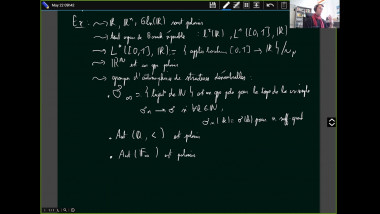 May 22 09:43
Ex : → ℝ, ℝⁿ, GLₙ(ℝ) sont polonais
→ tout espace de Banach séparable : ℓ¹(ℝ), L¹([0,1], ℝ)
→ L⁰([0,1], ℝ) = { applications [0,1] → ℝ }/~
→ ℝ^ℕ est un gpe polonais
→ groupes d'automorphismes de structures dénombrables :
𝔖_∞ = { bij de ℕ } est un gpe pol pour la topo de la cv simple
σₙ → σ si ∀k∈ℕ,
σₙ(k) = σ(k) pour n suff grand
• Aut(ℚ, <) est polonais
• Aut(𝔽_∞) est polonais